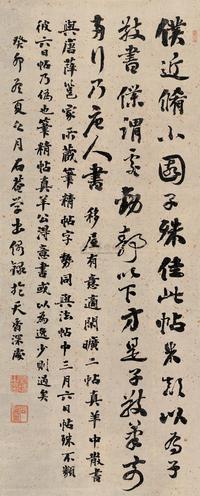 僕近脩小園子殊佳此帖米顛以為子
敬書僕謂處動靜以下方是子敬前
行乃唐人書移屋有意適閒曠二帖真羊中散書
與唐薛邕家所藏筆精帖字勢同與法帖中三月六日帖殊不類
彼六日帖乃偽也筆精帖真羊公得意書或以為逸少則過矣
癸卯冬夏之月石菴學書偶錄於天香深處